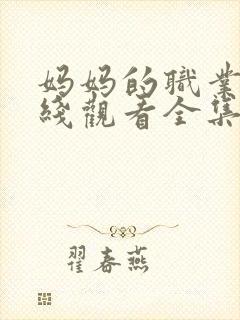 妈妈的職業
綫觀看全集
翟春燕